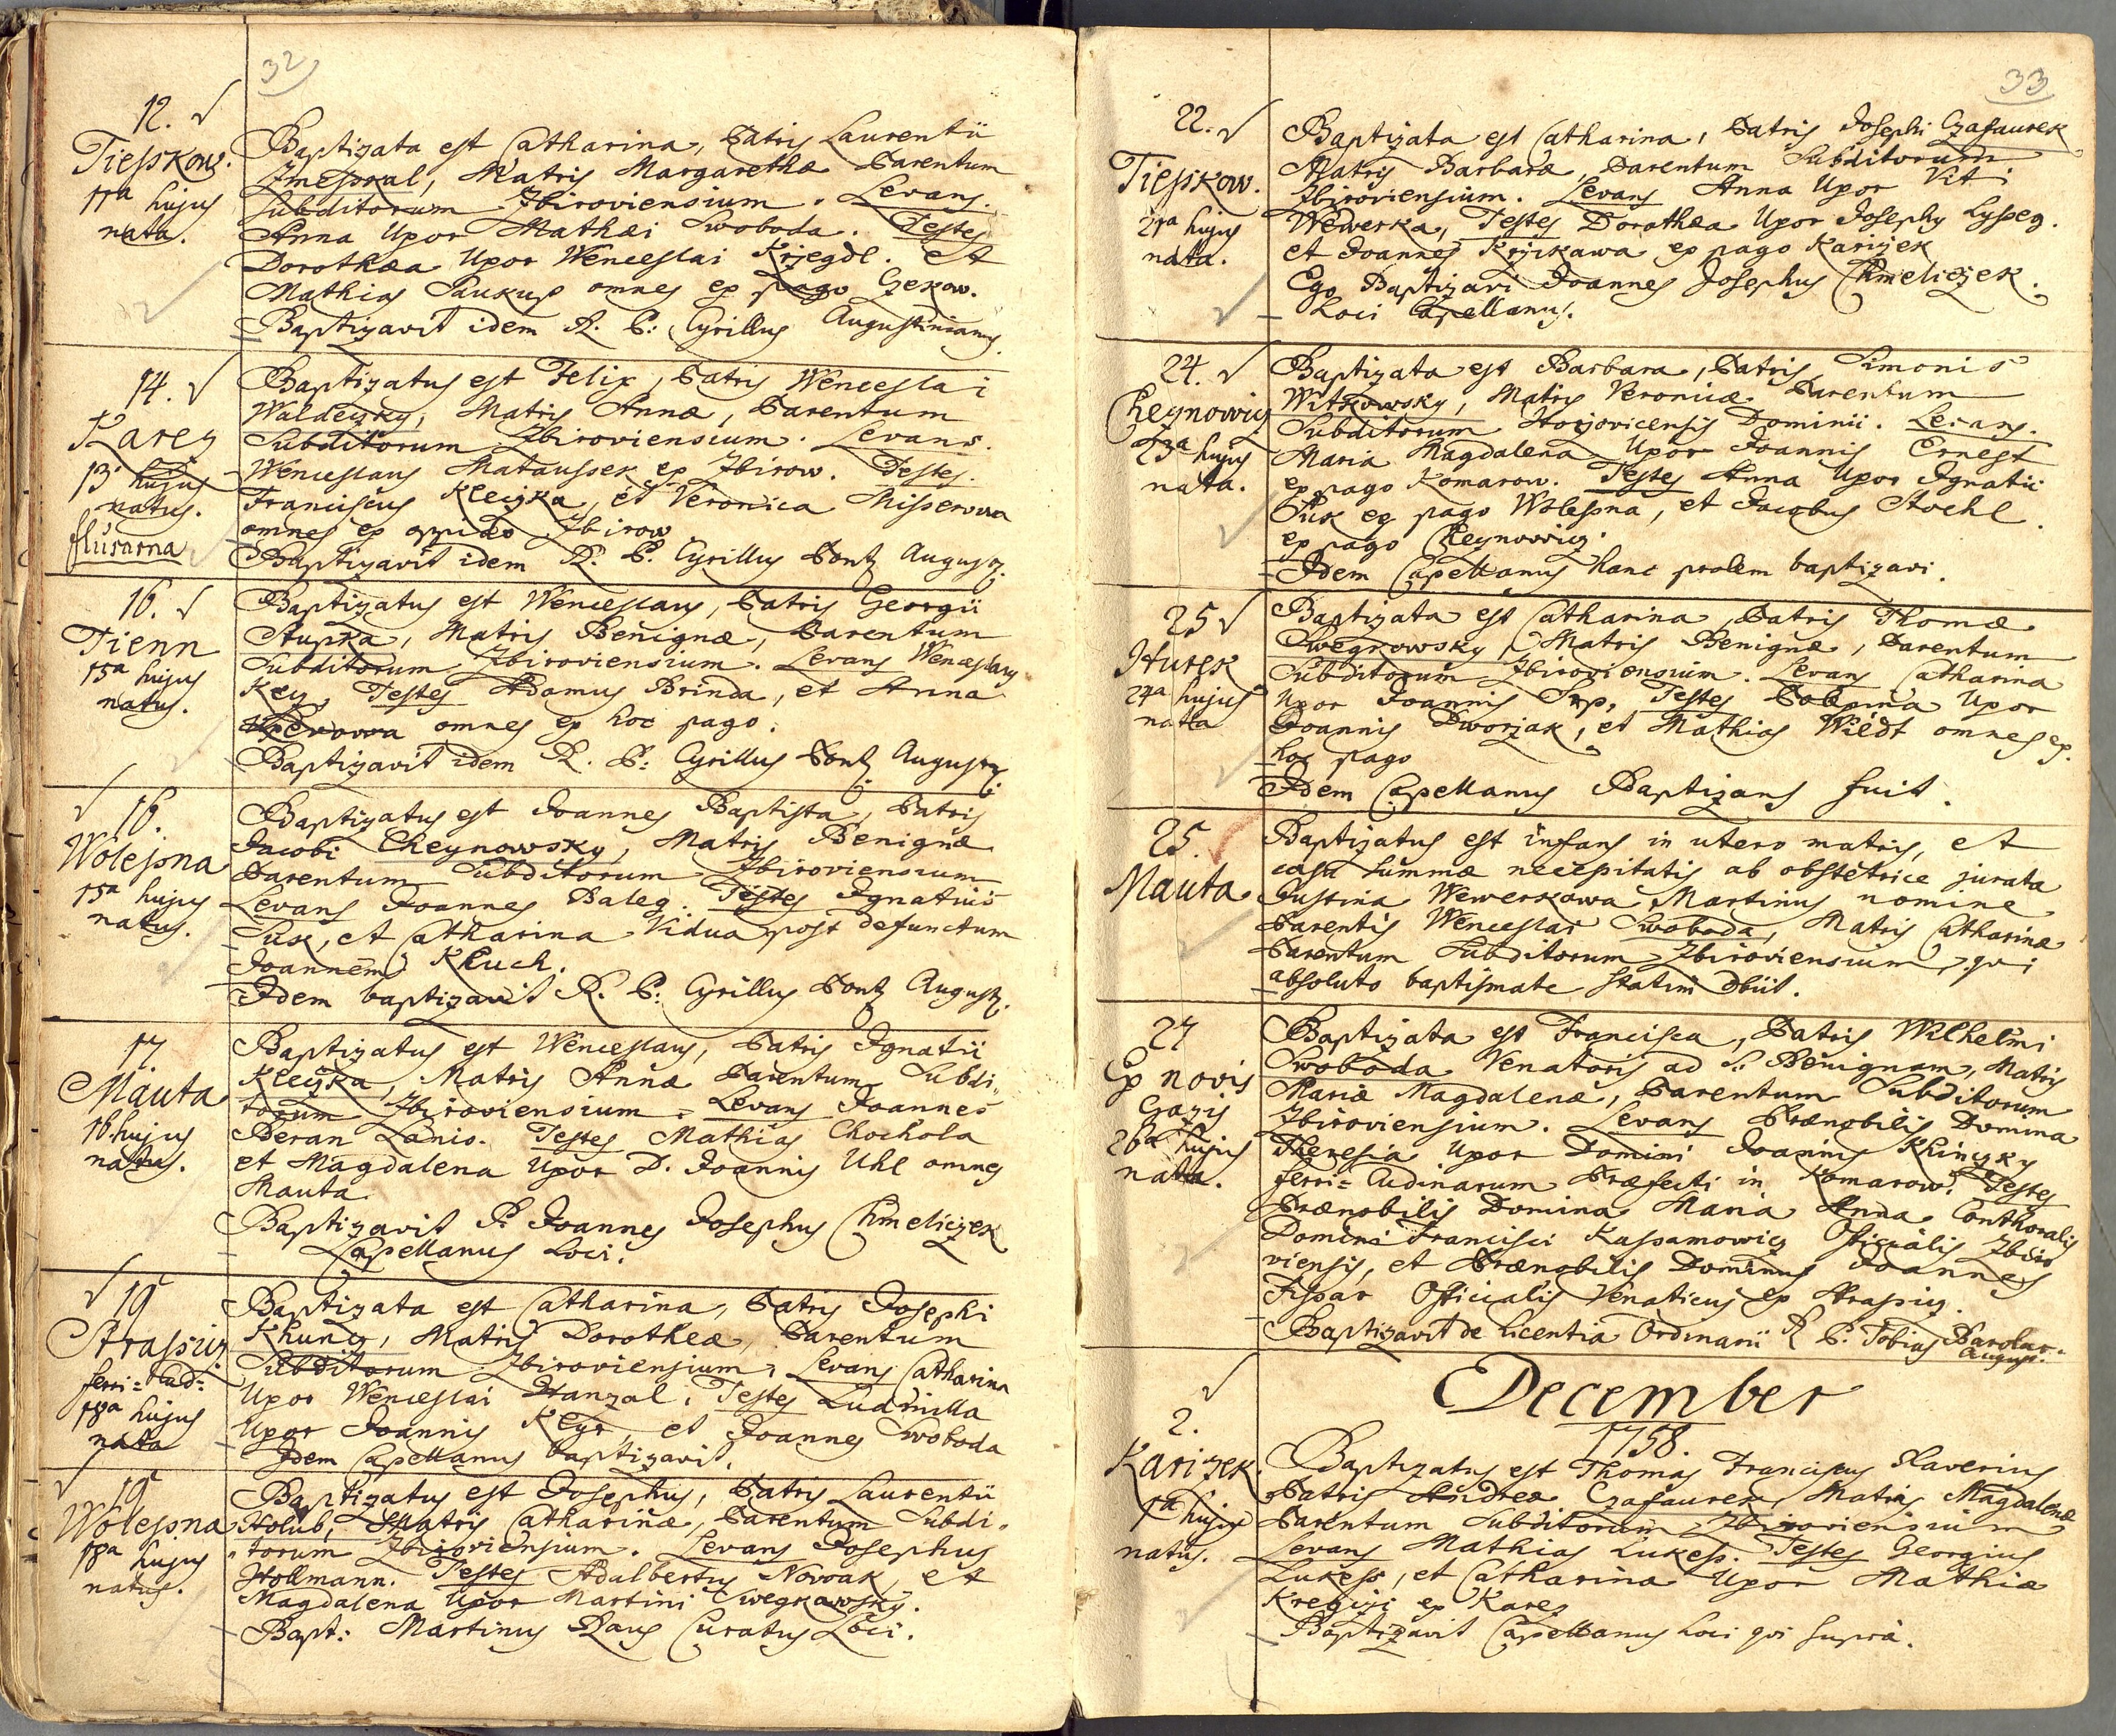 32
12.
Tiesskow.
11a hujus
nata.
Baptizata est Catharina, Patris Laurentii
Zmesskal, Matris Margarethæ Parentum
Subditorum Zbiroviensium. Levans.
Anna Uxor Mathæi Swoboda. Testes
Dorothæa Uxor Wenceslai Krzegdl. et
Mathias Saukup omnes ex pago Czekow.
Baptizavit idem R. P: Cyrillus Augustinianus
14.
Karez
13. hujus
natus.
Baptizatus est Felix, Patris Wenceslai
Waldeczky, Matris Annæ, Parentum
Subditorum Zbiroviensium. Levans.
Wenceslaus Matausser ex Zbirow. Testes.
Franciscus Kleczka, et Veronica
omnes ex oppido Zbirow
Baptizavit idem R. P. Cyrillus August.
16.
Tienn
15a hujus
natus.
Baptizatus est Wenceslaus, Patris Georgii
Stupka, Matris Benignæ, Parentum
Subditorum Zbiroviensium. Levans Wenceslaus
Testes Adamus Brinda, et Anna
omnes ex hoc pago.
Baptizavit idem R. P: Cyrillus August.
16.
Wolessna
15a hujus
natus.
Baptizatus est Joannes Baptista, Patris
Jacobi Cheynowsky, Matris Benignæ
Parentum Subditorum Zbiroviensium
Levans Joannes Baleg. Testes Ignatius
Suk, et Catharina Vidua post defunctum
Joannem Kluch.
Idem baptizavit R. P: Cyrillus August.
17.
Mauta
16 hujus
natus.
Baptizatus est Wenceslaus, Patris Ignatii
Kleczka, Matris Annæ Parentum Subdi-
torum Zbiroviensium. Levans Joannes
Beran Lanio. Testes Mathias Chochola
et Magdalena Uxor D. Joannis Uhl omnes
Mauta
Baptizavit P. Joannes Josephus Chmeliczek
Capellanus Loci.
19
Strassicz
ferri-Cud:
18a hujus
nata
Baptizata est Catharina, Patris Josephi
Khuncz, Matris Dorotheæ, Parentum
Subditorum Zbiroviensium, Levans Catharina
Uxor Wenceslai Hanzal. Testes Ludmilla
Uxor Joannis et Joannes Swoboda
Idem Capellanus baptizavit.
19
Wolessna
18a hujus
natus.
Baptizatus est Josephus, Patris Laurentii
Holub, Matris Catharinæ, Parentum Subdi-
torum Zbiroviensium. Levans Josephus
Hollmann. Testes Adalbertus Nowak, et
Magdalena Uxor Martini Cwegkowsky.
Bapt: Martinus Curatus Loci.
33
22.
Tiesskow.
21a hujus
nata.
Baptizata est Catharina, Patris Josephi Czasaurek
Matris Barbaræ, Parentum Subditorum
Zbiroviensium. Levans Anna Uxor Viti
Wewerka, Testes Dorothæa Uxor Josephy
et Joannes Krzikawa ex pago Karizek
Ego Baptizavi Joannes Josephus Chmeliczek.
Loci Capellanus.
24.
Cheynowicz
23a hujus
nata.
Baptizata est Barbara, Patris Simonis
Witkowsky, Matris Veronicæ Parentum
Subditorum Horzovicensis Dominii. Levans.
Maria Magdalena Uxor Joannis Ernest
ex pago Komarow. Testes Anna Uxor Ignatii
Suk ex pago Wolessna, et Jacobus Stoehl.
ex pago Cheynowicz.
Idem Capellanus hanc prolem baptizavi.
25
Hurek
24a hujus
nata
Baptizata est Catharina, Patris Thomæ
Cwegrowsky, Matris Benignæ, Parentum
Subditorum Zbiroviensium. Levans Catharina
Uxor Joannis Srp, Testes Uxor
Joannis Dworzak, et Mathias Wildt omnes ex
hoc pago
Idem Capellanus Baptizans fuit.
25.
Mauta
Baptizatus est infans in utero matris, et
casu summæ necessitatis ab obstetrice jurata
Justina Wewerkowa, Martinus nomine
Parentis Wenceslai Swoboda, Matris Catharinæ
Parentum Subditorum Zbiroviensium, qui
absoluto baptismate statim obiit.
27
Ex novis
Casis
26a hujus
nata.
Baptizata est Francisca, Patris Wilhelmi
Swoboda Venatoris ad S: Benignam, Matris
Mariæ Magdalenæ, Parentum Subditorum
Zbiroviensium. Levans Prænobilis Domina
Theresia Uxor Domini Joannis Khinczky
ferri-Cudinarum Præfecti in Komarow. Testes
Prænobilis Domina Maria Anna Conthoralis
Domini Francisci Kassamowicz Officialis Zbiro
viensis, et Prænobilis Dominus Joannes
Fissar Officialis Venaticus ex Strassicz.
Baptizavit de Licentia Ordinarii R. P. Tobias
August.
December
1758.
2.
Karizek.
1a hujus
natus.
Baptizatus est Thomas Franciscus Xaverius
Patris Andreæ Czasaurek, Matris Magdalenæ
Parentum Subditorum Zbiroviensium
Levans Mathias Lukess. Testes Georgius
Lukess, et Catharina Uxor Mathiæ
Kregczi ex Karez
Baptizavit Capellanus Loci qui supra.